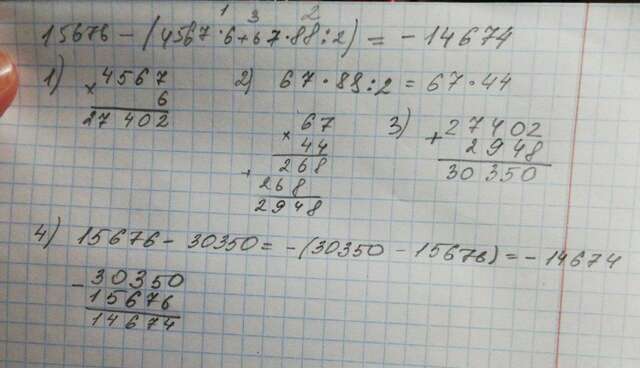 1 3 2
15676 - (4567 · 6 + 67 · 88 : 2) = -14674
1) 4567
× 6
27402
2) 67 · 88 : 2 = 67 · 44
× 67
44
+ 268
268
2948
3) + 27402
2948
30350
4) 15676 - 30350 = -(30350 - 15676) = -14674
- 30350
15676
14674